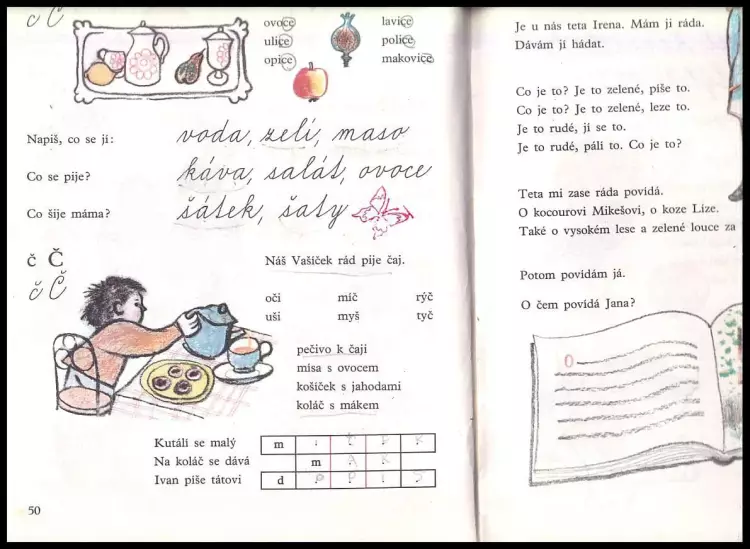 č Č
ovoce lavice
ulice police
opice makovice
Napiš, co se jí: voda, zelí, maso
Co se pije? káva, salát, ovoce
Co šije máma? šátek, šaty
č Č
č Č
Náš Vašíček rád pije čaj.
oči míč rýč
uši myš tyč
pečivo k čaji
mísa s ovocem
košíček s jahodami
koláč s mákem
Kutálí se malý m
Na koláč se dává m A K
Ivan píše tátovi d O P I S
50
Je u nás teta Irena. Mám ji ráda.
Dávám jí hádat.
Co je to? Je to zelené, píše to.
Co je to? Je to zelené, leze to.
Je to rudé, jí se to.
Je to rudé, pálí to. Co je to?
Teta mi zase ráda povídá.
O kocourovi Mikešovi, o koze Líze.
Také o vysokém lese a zelené louce za
Potom povídám já.
O čem povídá Jana?
O